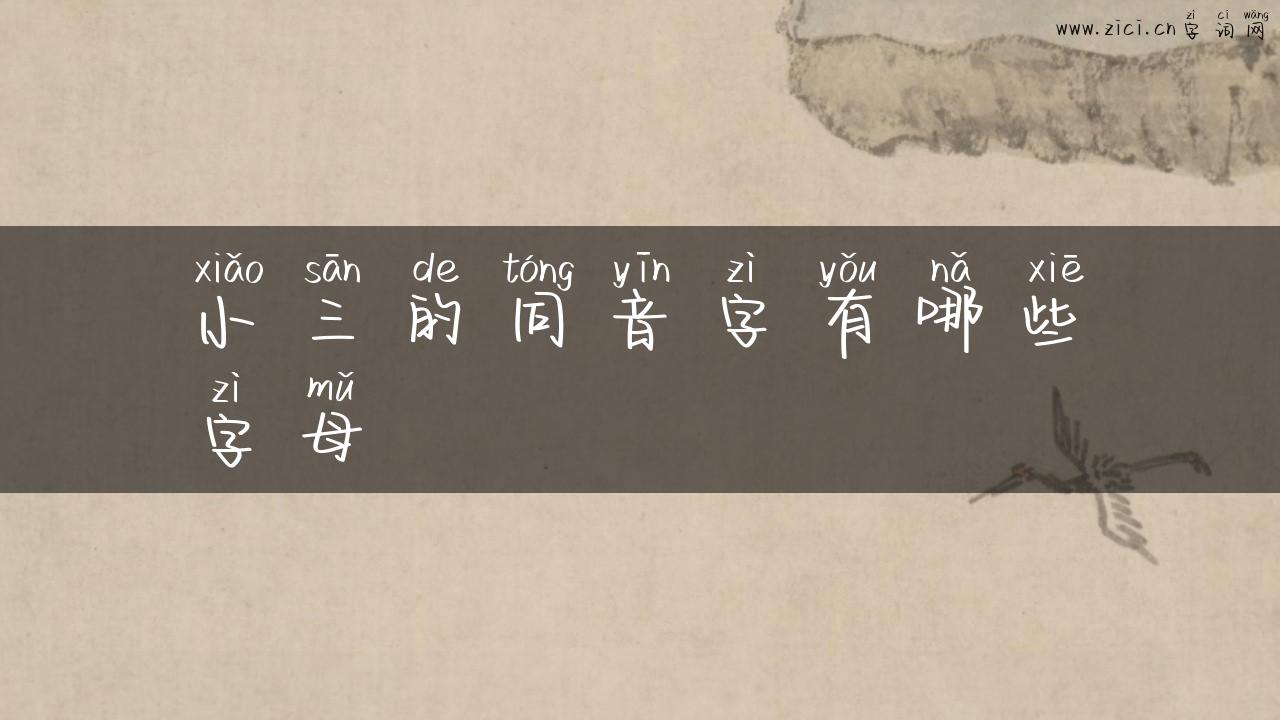 zì cí wǎng
www.zici.cn 字词网
xiǎo sān de tóng yīn zì yǒu nǎ xiē
小三的同音字有哪些
zì mǔ
字母